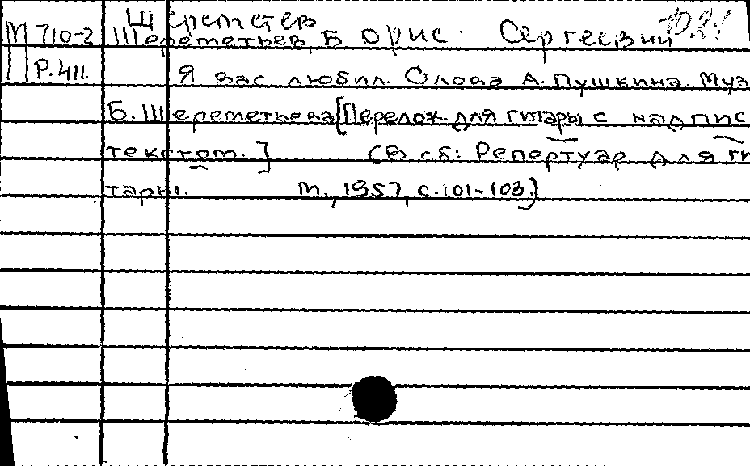 Шереметев
М 710-2 Шереметьев, Борис Сергеевич
Р.411. Я вас любил. Слова А. Пушкина. Муз
Б. Шереметьева [Перелож. для гитары с надпис
текстом.] (В сб.: Репертуар для ги
тары. М., 1957, с. 101-103)